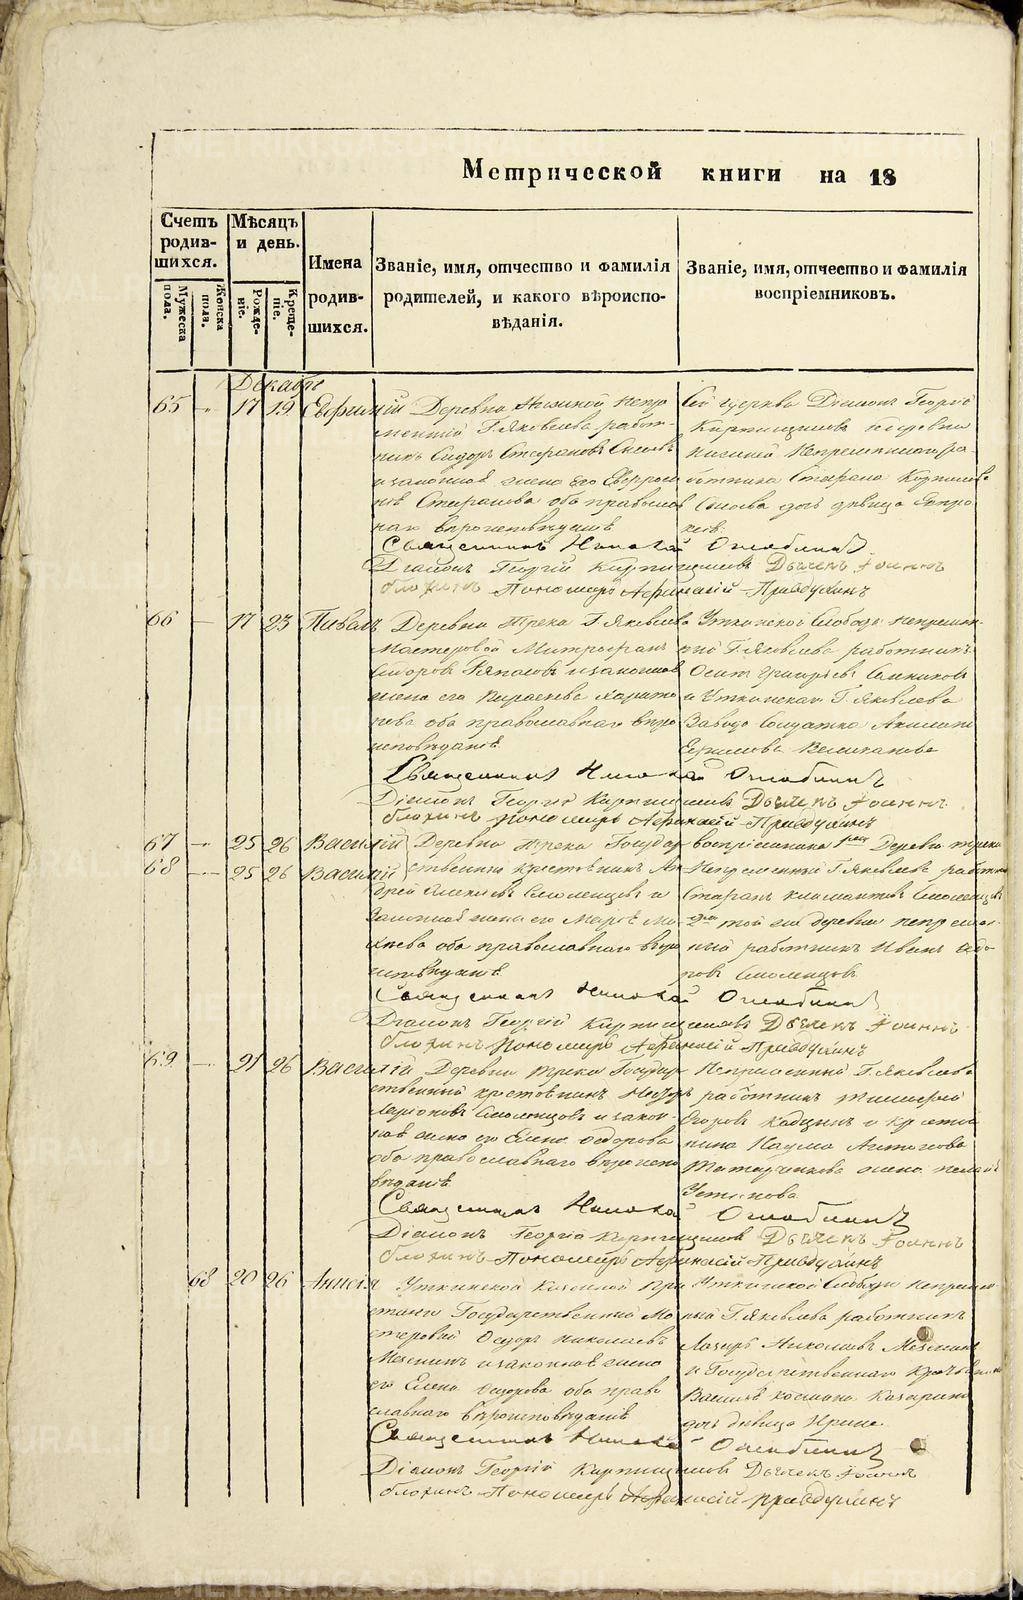 Метрической книги на 18
Счетъ родив-шихся.
Мужеска пола.
Женска пола.
Мѣсяцъ и день.
Рожде-ніе.
Креще-ніе.
Имена родив-шихся.
Званіе, имя, отчество и фамилія
родителей, и какого вѣроиспо-
вѣданія.
Званіе, имя, отчество и фамилія
воспріемниковъ.
Декабрь
65 17 19 Евфимій
Деревни Нижней Непре
менный Г. Яковлева работ-
никъ Сидоръ Стефановъ
и законная жена его
Стефанова оба православ
наго вѣроисповѣданія
Сей церкви Діаконъ Георгій
Кирпищиковъ и деревни
Нижней Непремѣннаго ра-
ботника Стефана
дочь дѣвица
Священникъ Николай Оглоблинъ
Діаконъ Георгій Кирпищиковъ Дьячекъ Іоаннъ
Блохинъ Пономарь Афанасій Правдухинъ
66 17 23 Павелъ
Деревни Трека Г. Яковлева
мастеровой Митрофанъ
и законная
жена его Харито
нова оба православнаго вѣро
исповѣданія
Уткинской Слободы Непремѣн-
ный Г. Яковлева работникъ
Осипъ Григорьевъ
и Уткинскаго Г. Яковлева
Завода Солдатка
Ефимова Великанова
Священникъ Николай Оглоблинъ
Діаконъ Георгій Кирпищиковъ Дьячекъ Іоаннъ
Блохинъ Пономарь Афанасій Правдухинъ
67 25 26 Василій
68 25 26 Василій
Деревни Трека Государ
ственный крестьянинъ Ан
дрей Алексѣевъ Смоленцовъ и
законная жена его Марѳа
оба православнаго вѣро
исповѣданія
воспріемники 1го Деревни Треки
Непремѣнный Г. Яковлева работникъ
Стефанъ Климантовъ Смоленцовъ
2го той же деревни непремѣн-
ный работникъ Иванъ Ѳедо
ровъ Смоленцовъ
Священникъ Николай Оглоблинъ
Діаконъ Георгій Кирпищиковъ Дьячекъ Іоаннъ
Блохинъ Пономарь Афанасій Правдухинъ
69 21 26 Василій
Деревни Трека Государ
ственный крестьянинъ
Ларіоновъ Смоленцовъ и закон-
ная жена его Елена Ѳедорова
оба православнаго вѣроиспо
вѣданія
Непремѣнный Г. Яковлева
работникъ Тимофей
Егоровъ и крестья
нина Наума
жена Пелагея
Устинова
Священникъ Николай Оглоблинъ
Діаконъ Георгій Кирпищиковъ Дьячекъ Іоаннъ
Блохинъ Пономарь Афанасій Правдухинъ
68 20 26 Анисія
Уткинской Казенной При
стани Государственный Ма
стеровой Ѳедоръ Николаевъ
и законная жена
его Елена Ѳедорова оба право
славнаго вѣроисповѣданія
Уткинской Слободы Непремѣн
ный Г. Яковлева работникъ
Лазарь Николаевъ
и Государственнаго Крестьянина
дочь дѣвица Ирина
Священникъ Николай Оглоблинъ
Діаконъ Георгій Кирпищиковъ Дьячекъ Іоаннъ
Блохинъ Пономарь Афанасій Правдухинъ